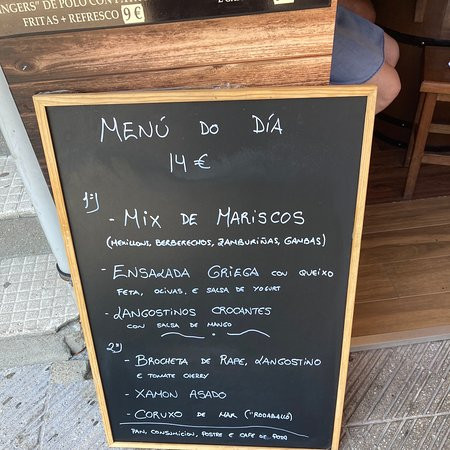 NGERS" DE POLO CON PATA
FRITAS + REFRESCO 9 €
MENÚ DO DÍA
14 €
1º)
- MIX DE MARISCOS
(MEXILLONS, BERBERECHOS, ZAMBURIÑAS, GAMBAS)
- ENSALADA GRIEGA CON QUEIXO
FETA, OLIVAS, E SALSA DE YOGURT
- LANGOSTINOS CROCANTES
CON SALSA DE MANGO
2º)
- BROCHETA DE RAPE, LANGOSTINO
E TOMATE CHERRY
- XAMON ASADO
- CORUXO DE MAR ("RODABALLO")
PAN, CONSUMICION, POSTRE E CAFE DE POTA